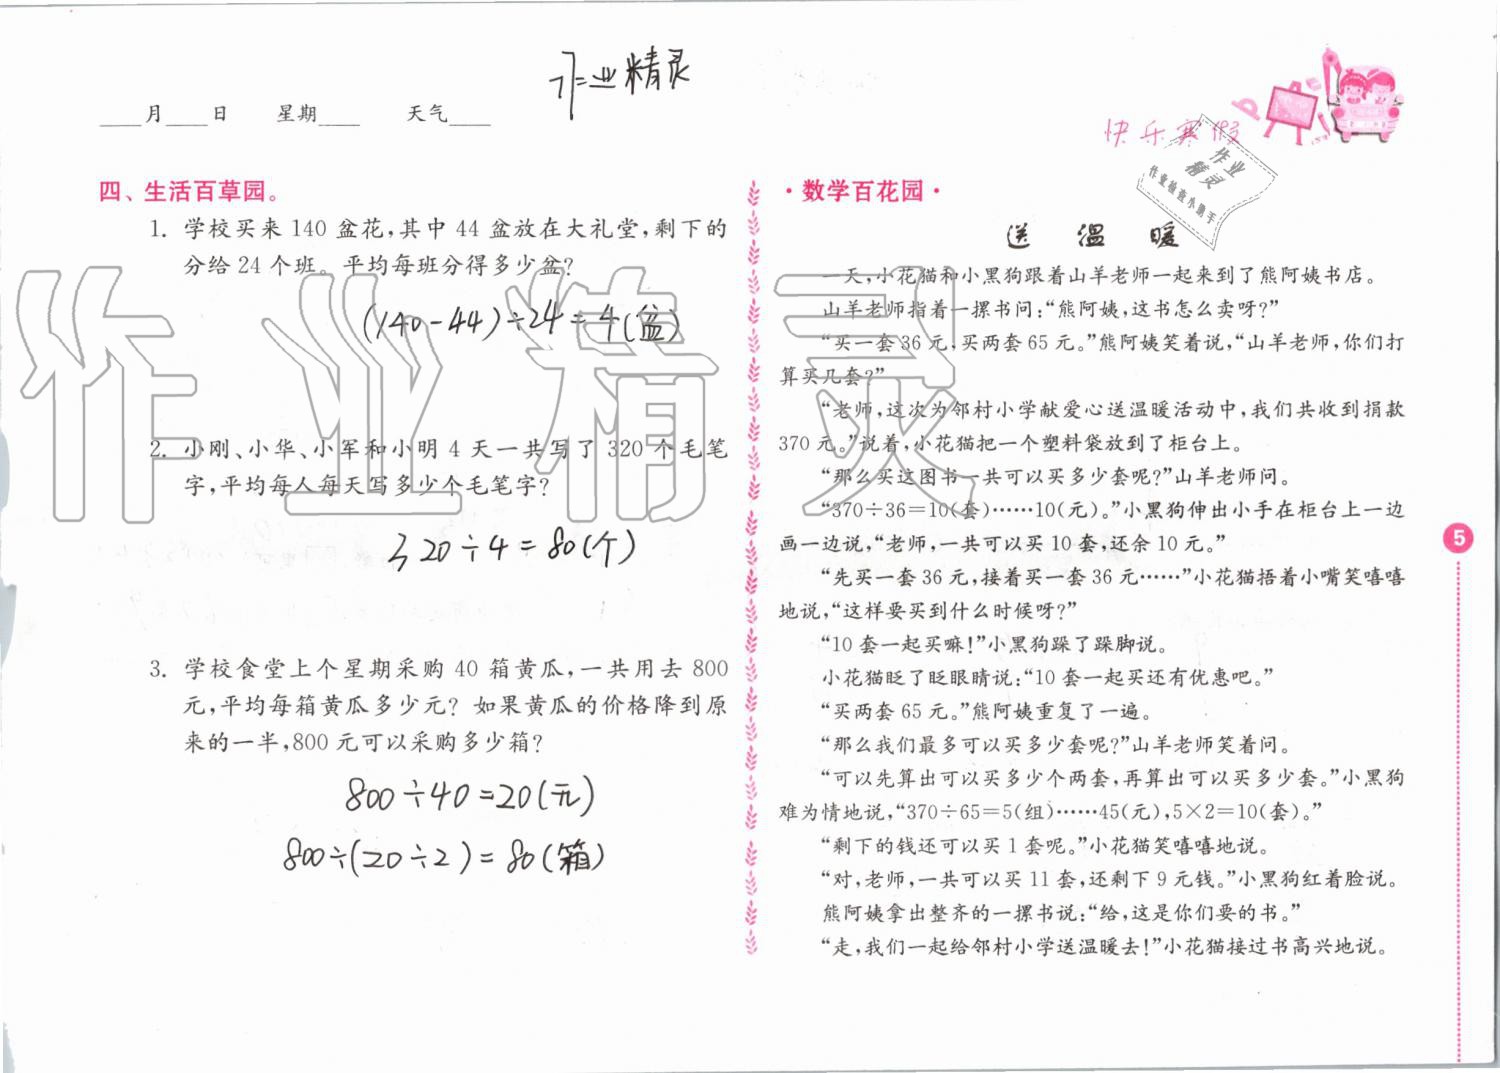 作业精灵
____月____日 星期____ 天气____
快乐寒假
作业
精灵
作业检查小助手
四、生活百草园。
1. 学校买来 140 盆花,其中 44 盆放在大礼堂,剩下的
分给 24 个班。平均每班分得多少盆?
(140-44)÷24=4(盆)
2. 小刚、小华、小军和小明 4 天一共写了 320 个毛笔
字,平均每人每天写多少个毛笔字?
320÷4=80(个)
3. 学校食堂上个星期采购 40 箱黄瓜,一共用去 800
元,平均每箱黄瓜多少元? 如果黄瓜的价格降到原
来的一半,800 元可以采购多少箱?
800÷40=20(元)
800÷(20÷2)=80(箱)
·数学百花园·
送 温 暖
一天,小花猫和小黑狗跟着山羊老师一起来到了熊阿姨书店。
山羊老师指着一摞书问:“熊阿姨,这书怎么卖呀?”
“买一套 36 元,买两套 65 元。”熊阿姨笑着说,“山羊老师,你们打
算买几套?”
“老师,这次为邻村小学献爱心送温暖活动中,我们共收到捐款
370 元。”说着,小花猫把一个塑料袋放到了柜台上。
“那么买这图书一共可以买多少套呢?”山羊老师问。
“370÷36=10(套)……10(元)。”小黑狗伸出小手在柜台上一边
画一边说,“老师,一共可以买 10 套,还余 10 元。”
“先买一套 36 元,接着买一套 36 元……”小花猫捂着小嘴笑嘻嘻
地说,“这样要买到什么时候呀?”
“10 套一起买嘛!”小黑狗跺了跺脚说。
小花猫眨了眨眼睛说:“10 套一起买还有优惠吧。”
“买两套 65 元。”熊阿姨重复了一遍。
“那么我们最多可以买多少套呢?”山羊老师笑着问。
“可以先算出可以买多少个两套,再算出可以买多少套。”小黑狗
难为情地说,“370÷65=5(组)……45(元),5×2=10(套)。”
“剩下的钱还可以买 1 套呢。”小花猫笑嘻嘻地说。
“对,老师,一共可以买 11 套,还剩下 9 元钱。”小黑狗红着脸说。
熊阿姨拿出整齐的一摞书说:“给,这是你们要的书。”
“走,我们一起给邻村小学送温暖去!”小花猫接过书高兴地说。
5
作业精灵